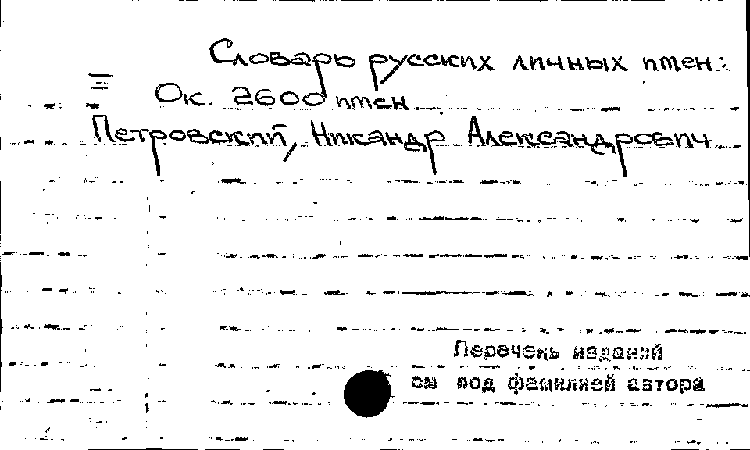 Словарь русских личных имен:
Ок. 2600 имен
Петровский, Никандр Александрович
Перечень изданий
см под фамилией автора